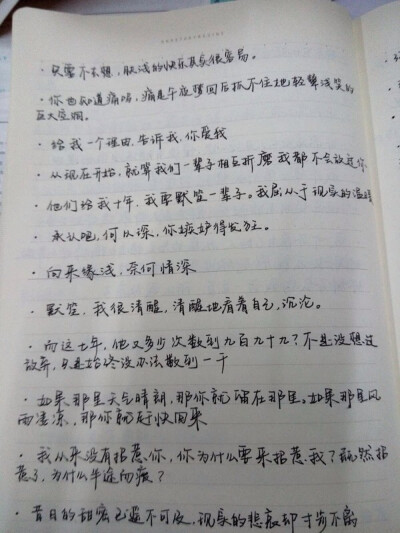 · 只要不去想，肤浅的快乐其实很容易。
· 你也知道痛吗，痛是午夜梦回后抓不住她轻颦浅笑的
巨大空洞。
· 给我一个理由，告诉我，你爱我
· 从现在开始，就算我们一辈子相互折磨我都不会放过你
· 他们给我十年，我要默笙一辈子。我屈从于现实的温暖
· 承认吧，何以琛，你嫉妒得发狂。
· 向来缘浅，奈何情深
· 默笙，我很清醒，清醒地看着自己，沉沦。
· 而这七年，他又多少次数到九百九十九？不是没想过
放弃，只是始终没办法数到一千
· 如果那里天气晴朗，那你就留在那里。如果那里风
雨凄凉，那你就赶快回来
· 我从来没有招惹你，你为什么要来招惹我？既然招
惹了，为什么半途而废？
· 昔日的甜蜜已遥不可及，现实的悲哀却寸步不离